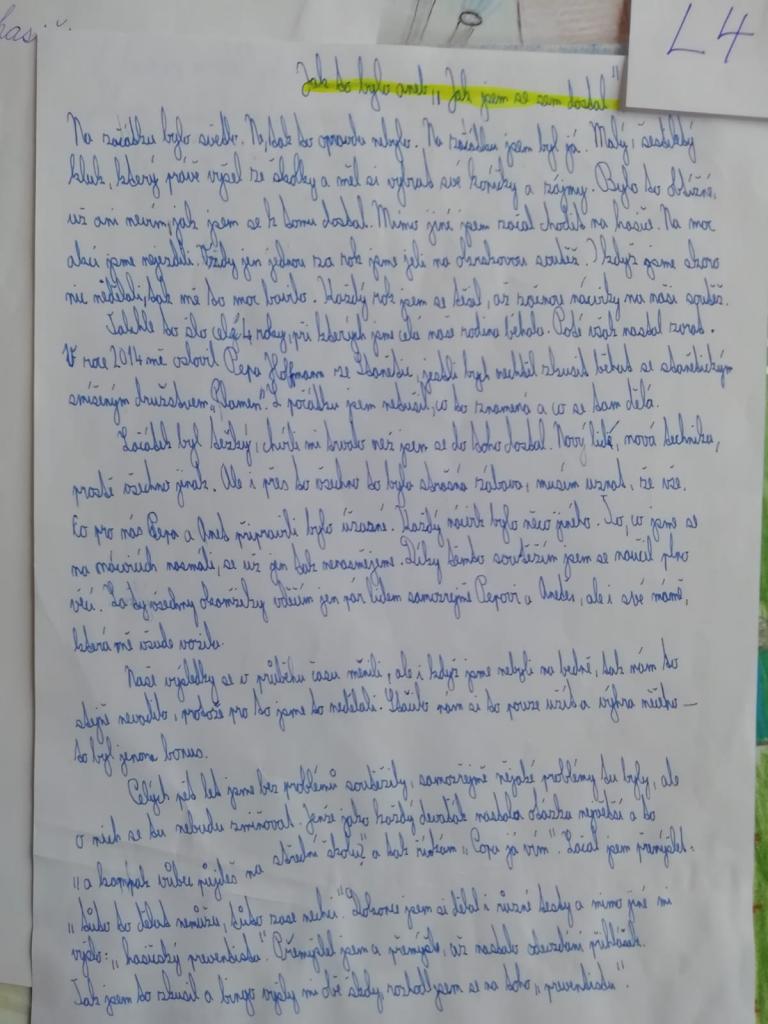 L4
hasič
Jak to bylo aneb „Jak jsem se sem dostal"
Na začátku bylo světlo. No, tak to opravdu nebylo. Na začátku jsem byl já. Malý, šestiletý
kluk, který právě vyšel ze školky a měl si vybrat své koníčky a zájmy. Bylo to obtížné,
už ani nevím, jak jsem se k tomu dostal. Mimo jiné jsem začal chodit na hasiče. Na moc
akcí jsme nejezdili. Vždy jen jednou za rok jsme jeli na okrskovou soutěž. I když jsme skoro
nic nedělali, tak mě to moc bavilo. Každý rok jsem se těšil, až začnou nácviky na naši soutěž.
Takhle to šlo celé 4 roky, při kterých jsme celá naše rodina běhala. Poté však nastal zvrat.
V roce 2014 mě oslovil Pepa Hoffmann ze jestli bych nechtěl zkusit běhat se
smíšeným družstvem „Plamen". Z počátku jsem netušil, co to znamená a co se tam dělá.
Začátek byl těžký, chvíli mi trvalo než jsem se do toho dostal. Nový lidé, nová technika,
prostě všechno jinak. Ale i přes to všechno to byla strašná zábava, musím uznat, že vše.
Co pro nás Pepa a Anet připravili bylo úžasné. Každý nácvik bylo něco jiného. To, co jsme se
na nácvicích nasmáli, se už jen tak nenasmějeme. Díky těmto soutěžím jsem se naučil plno
věcí. Za ty všechny okamžiky vděčím jen pár lidem samozřejmě Pepovi a Anetě, ale i své mámě,
která mě všude vozila.
Naše výsledky se v průběhu času měnili, ale i když jsme nebyli na bedně, tak nám to
stejně nevadilo, protože pro to jsme to nedělali. Stačilo nám si to pouze užít a výhra něčeho –
to byl jenom bonus.
Celých pět let jsme bez problémů soutěžily, samozřejmě nějaké problémy tu byly, ale
o nich se tu nebudu zmiňovat. Jenže jako každý deváťák nastala otázka největší a to
„a kampak vůbec půjdeš na střední školu?" a tak říkám „Copa já vím". Začal jsem přemýšlet:
„tuto to dělat nemůžu, tuto zase nechci". Dokonce jsem si dělal i různé testy a mimo jiné mi
vyšlo: „hasičský preventista". Přemýšlel jsem a přemýšlel, až nastalo odevzdání přihlášek.
Tak jsem to zkusil a bingo vyšly mi obě školy, rozhodl jsem se na toho „preventistu".